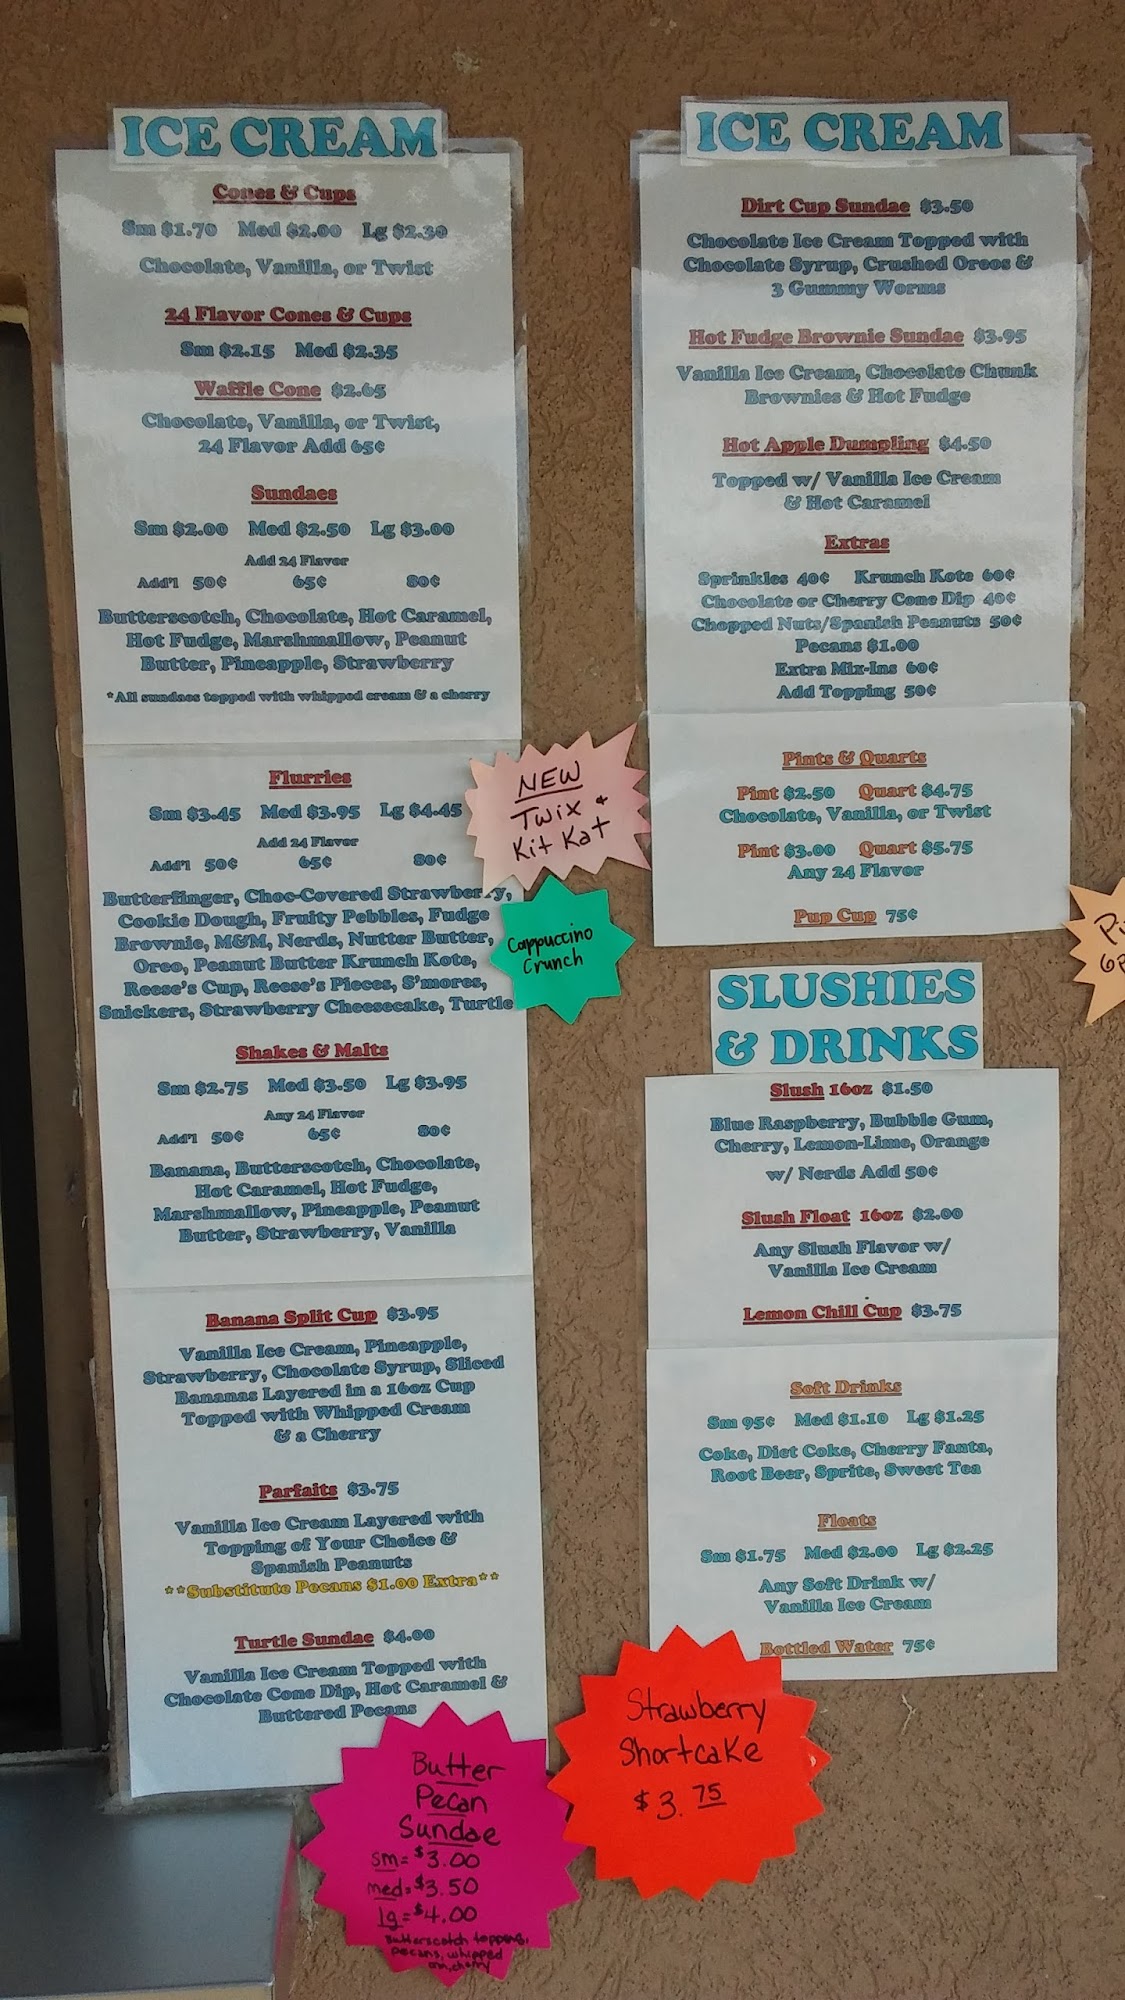 ICE CREAM
Cones & Cups
Sm $1.70 Med $2.00 Lg $2.30
Chocolate, Vanilla, or Twist
24 Flavor Cones & Cups
Sm $2.15 Med $2.35
Waffle Cone $2.65
Chocolate, Vanilla, or Twist,
24 Flavor Add 65¢
Sundaes
Sm $2.00 Med $2.50 Lg $3.00
Add 24 Flavor
Add'l 50¢ 65¢ 80¢
Butterscotch, Chocolate, Hot Caramel,
Hot Fudge, Marshmallow, Peanut
Butter, Pineapple, Strawberry
*All sundaes topped with whipped cream & a cherry
Flurries
Sm $3.45 Med $3.95 Lg $4.45
Add 24 Flavor
Add'l 50¢ 65¢ 80¢
Butterfinger, Choc-Covered Strawberry,
Cookie Dough, Fruity Pebbles, Fudge
Brownie, M&M, Nerds, Nutter Butter,
Oreo, Peanut Butter Krunch Kote,
Reese's Cup, Reese's Pieces, S'mores,
Snickers, Strawberry Cheesecake, Turtle
Shakes & Malts
Sm $2.75 Med $3.50 Lg $3.95
Any 24 Flavor
Add'l 50¢ 65¢ 80¢
Banana, Butterscotch, Chocolate,
Hot Caramel, Hot Fudge,
Marshmallow, Pineapple, Peanut
Butter, Strawberry, Vanilla
Banana Split Cup $3.95
Vanilla Ice Cream, Pineapple,
Strawberry, Chocolate Syrup, Sliced
Bananas Layered in a 16oz Cup
Topped with Whipped Cream
& a Cherry
Parfaits $3.75
Vanilla Ice Cream Layered with
Topping of Your Choice &
Spanish Peanuts
**Substitute Pecans $1.00 Extra**
Turtle Sundae $4.00
Vanilla Ice Cream Topped with
Chocolate Cone Dip, Hot Caramel &
Buttered Pecans
Butter
Pecan
Sundae
sm = $3.00
med = $3.50
lg = $4.00
Butterscotch topping,
pecans, whipped
cherry
NEW
Twix +
Kit Kat
Cappuccino
Crunch
ICE CREAM
Dirt Cup Sundae $3.50
Chocolate Ice Cream Topped with
Chocolate Syrup, Crushed Oreos &
3 Gummy Worms
Hot Fudge Brownie Sundae $3.95
Vanilla Ice Cream, Chocolate Chunk
Brownies & Hot Fudge
Hot Apple Dumpling $4.50
Topped w/ Vanilla Ice Cream
& Hot Caramel
Extras
Sprinkles 40¢ Krunch Kote 60¢
Chocolate or Cherry Cone Dip 40¢
Chopped Nuts/Spanish Peanuts 50¢
Pecans $1.00
Extra Mix-Ins 60¢
Add Topping 50¢
Pints & Quarts
Pint $2.50 Quart $4.75
Chocolate, Vanilla, or Twist
Pint $3.00 Quart $5.75
Any 24 Flavor
Pup Cup 75¢
SLUSHIES
& DRINKS
Slush 16oz $1.50
Blue Raspberry, Bubble Gum,
Cherry, Lemon-Lime, Orange
w/ Nerds Add 50¢
Slush Float 16oz $2.00
Any Slush Flavor w/
Vanilla Ice Cream
Lemon Chill Cup $3.75
Soft Drinks
Sm 95¢ Med $1.10 Lg $1.25
Coke, Diet Coke, Cherry Fanta,
Root Beer, Sprite, Sweet Tea
Floats
Sm $1.75 Med $2.00 Lg $2.25
Any Soft Drink w/
Vanilla Ice Cream
Bottled Water 75¢
Strawberry
Shortcake
$3.75